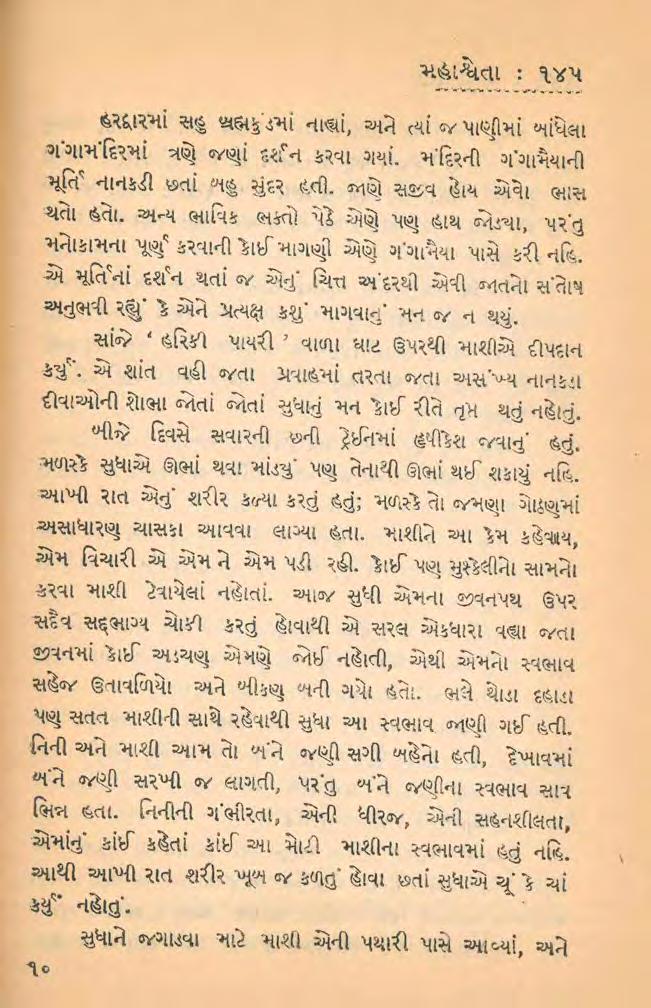 મહાશ્વેતા : ૧૪૫
હરદ્વારમાં સહુ બ્રહ્મકુંડમાં નાહ્યાં, અને ત્યાં જ પાણીમાં બાંધેલા
ગંગામંદિરમાં ત્રણે જણાં દર્શન કરવા ગયાં. મંદિરની ગંગામૈયાની
મૂર્તિ નાનકડી છતાં બહુ સુંદર હતી. જાણે સજીવ હોય એવો ભાસ
થતો હતો. અન્ય ભાવિક ભક્તો પેઠે એણે પણ હાથ જોડ્યા, પરંતુ
મનોકામના પૂર્ણ કરવાની કોઈ માગણી એણે ગંગામૈયા પાસે કરી નહિ.
એ મૂર્તિનાં દર્શન થતાં જ એનું ચિત્ત અંદરથી એવી જાતનો સંતોષ
અનુભવી રહ્યું કે એને પ્રત્યક્ષ કશું માગવાનું મન જ ન થયું.
સાંજે ‘ હરિકી પાયરી ’ વાળા ઘાટ ઉપરથી માશીએ દીપદાન
કર્યું. એ શાંત વહી જતા પ્રવાહમાં તરતા જતા અસંખ્ય નાનકડા
દીવાઓની શોભા જોતાં જોતાં સુધાનું મન કોઈ રીતે તૃપ્ત થતું નહોતું.
બીજે દિવસે સવારની છની ટ્રેઈનમાં હૃષીકેશ જવાનું હતું.
મળસ્કે સુધાએ ઊભાં થવા માંડયું પણ તેનાથી ઊભાં થઈ શકાયું નહિ.
આખી રાત એનું શરીર કળ્યા કરતું હતું; મળસ્કે તો જમણા ગોઠણમાં
અસાધારણ ચાસકા આવવા લાગ્યા હતા. માશીને આ કેમ કહેવાય,
એમ વિચારી એ એમ ને એમ પડી રહી. કોઈ પણ મુશ્કેલીનો સામનો
કરવા માશી ટેવાયેલાં નહોતાં. આજ સુધી એમના જીવનપથ ઉપર
સદૈવ સદ્દભાગ્ય ચોકી કરતું હોવાથી એ સરલ એકધારા વહ્યા જતા
જીવનમાં કોઈ અડચણ એમણે જોઈ નહોતી, એથી એમનો સ્વભાવ
સહેજ ઉતાવળિયો અને બીકણ બની ગયો હતો. ભલે થોડા દહાડા
પણ સતત માશીની સાથે રહેવાથી સુધા આ સ્વભાવ જાણી ગઈ હતી.
નિની અને માશી આમ તો બંને જણી સગી બહેનો હતી, દેખાવમાં
બંને જણી સરખી જ લાગતી, પરંતુ બંને જણીના સ્વભાવ સાવ
ભિન્ન હતા. નિનીની ગંભીરતા, એની ધીરજ, એની સહનશીલતા,
એમાંનું કાંઈ કહેતાં કાંઈ આ મોટી માશીના સ્વભાવમાં હતું નહિ.
આથી આખી રાત શરીર ખૂબ જ કળતું હોવા છતાં સુધાએ ચૂં કે ચાં
કર્યું નહોતું.
સુધાને જગાડવા માટે માશી એની પથારી પાસે આવ્યાં, અને
૧૦